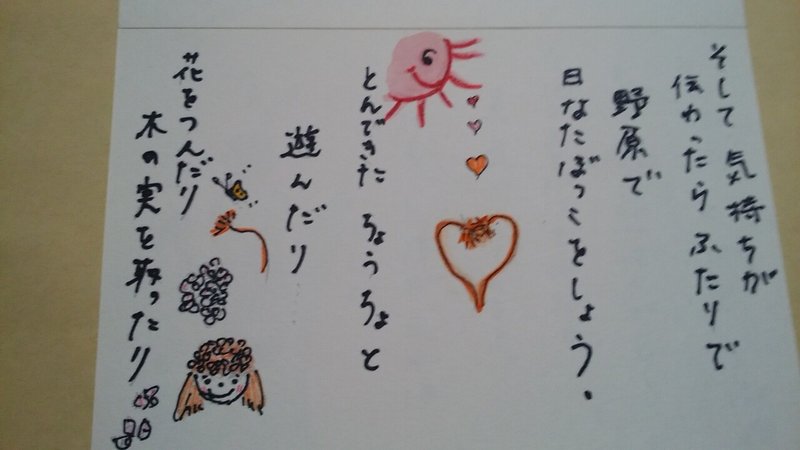 そして 気持ちが
伝わったら ふたりで
野原で
日なたぼっこをしよう.
とんできた ちょうちょと
遊んだり
花をつんだり
木の実を取ったり